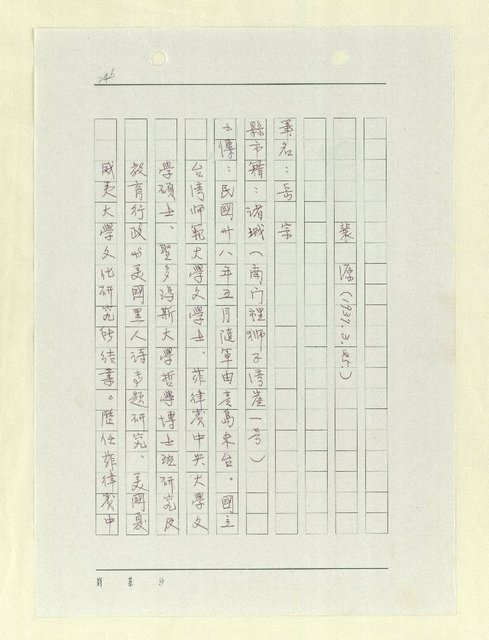 246
葉　 (1937.3.25.)
筆名：岳　宗
縣市籍：諸城(南门裡獅子湾崖一号)
小傳：民國卅八年五月隨軍由青島來台。國立
台湾師範大學文學士、菲律賓中央大學文
學碩士、聖多瑪斯大學哲學博士班研究及
教育行政与美國黑人詩專題研究、美國夏
威夷大學文化研究所結業。歷任菲律賓中
劉 慕 沙